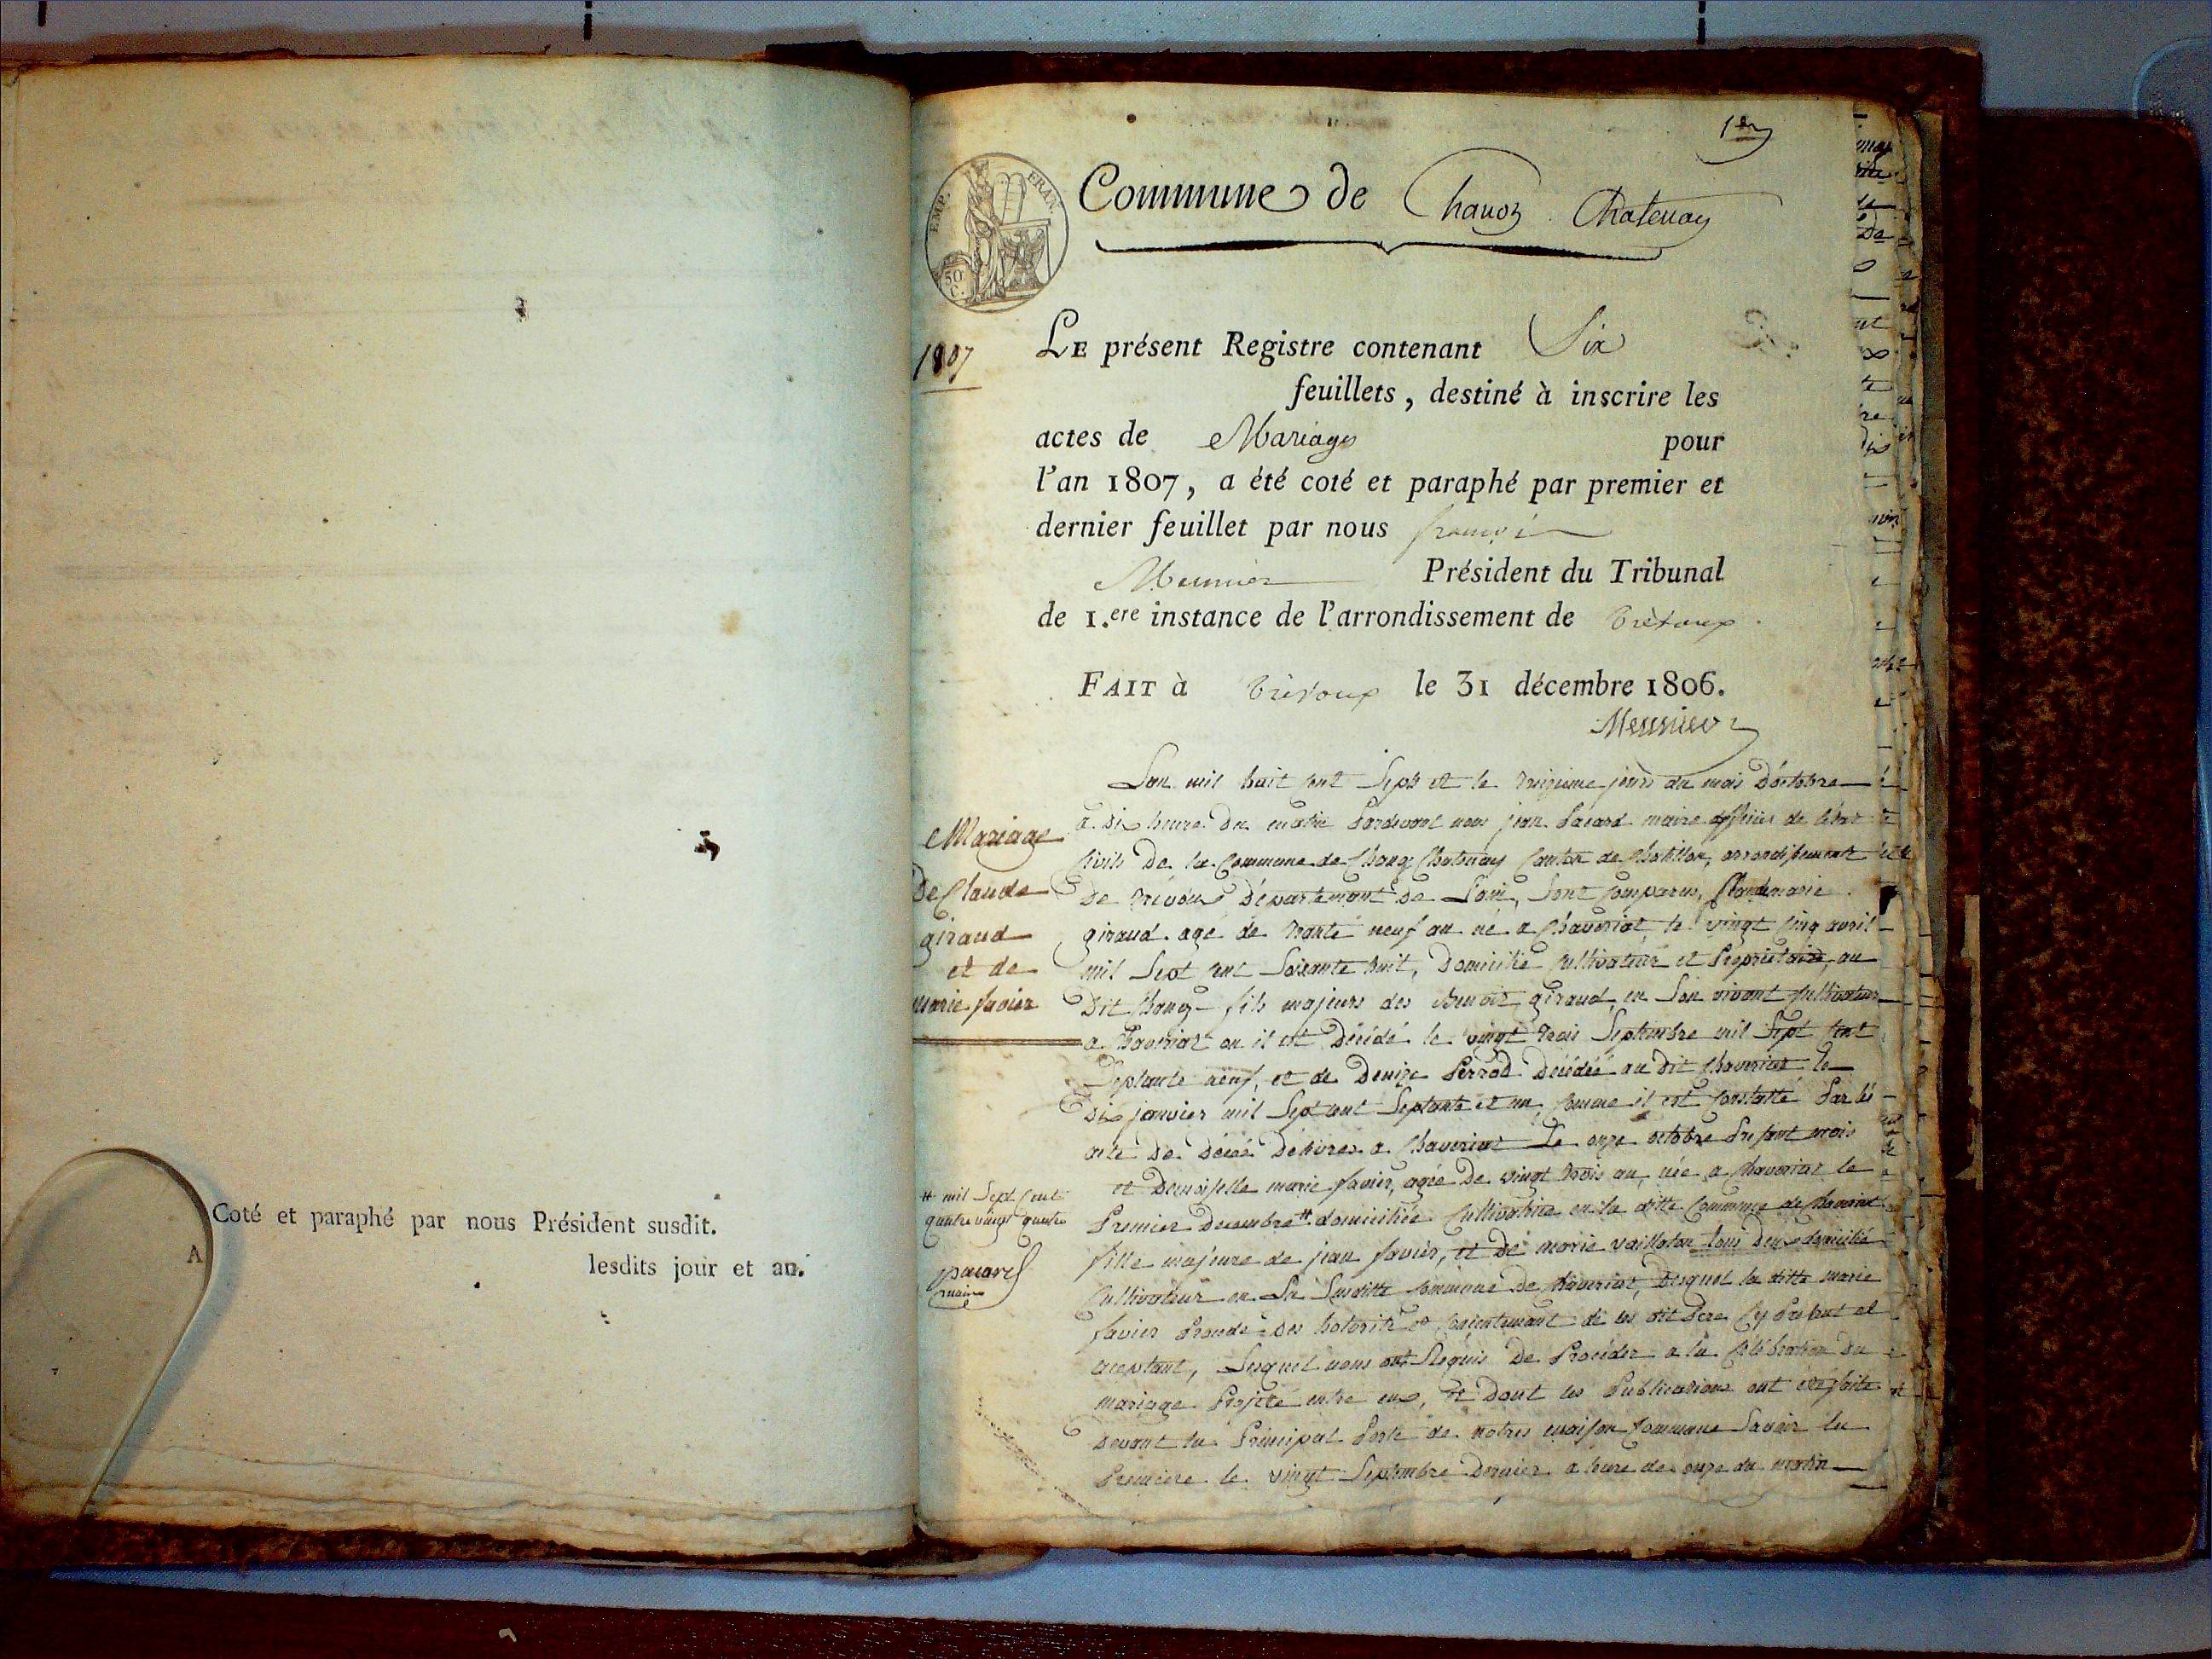 Coté et paraphé par nous Président susdit.
lesdits jour et an.
A
1er
EMP. FRAN.
50 C.
Commune de Chanoz Chatenay
1807
LE présent Registre contenant Six
feuillets, destiné à inscrire les
actes de Mariages pour
l'an 1807, a été coté et paraphé par premier et
dernier feuillet par nous françois
Meunier Président du Tribunal
de 1.ere instance de l'arrondissement de Trévoux.
FAIT à Trévoux le 31 décembre 1806.
Meunier
Mariage
De Claude
giraud
et de
marie favier
L'an mil huit cent Sept et le treizieme jours du mois D'octobre
a Dix heure Du matin Pardevant nous jean Pacard maire officier de l'état
Civile De la Commune de Chanoz Chatenay Canton de Chatillon, arrondissement
De trévoux Département De L'ain, Sont comparus, Claude marie
giraud agé de trante neuf an né a Chaveriat le vingt Cinq avril
mil Sept cent Soixante huit, Domicilié Cultivateur et Proprietaire, au
Dit Chanoz fils majeurs des Benoit giraud en Son vivant Cultivateur
a Chaveriat ou il est Décédé le vingt trois Septembre mil Sept Cent
Septante neuf, et de Denize Perrod Décédée au Dit Chaveriat le
Dix janvier mil Sept cent Septante et un, Comme il est Constatté Par les
acte De Décés Délivrés a Chaveriat Le onze octobre Présent mois
et Demoiselle marie favier, agée De vingt trois an, née a Chaveriat le
Premier Decembre # domiciliée Cultivatrice en la ditte Commune de Chaveriat
# mil Sept Cent
quatre vingt quatre
pacard
maire
fille majeure de jean favier, et De marie vaillaton tous Deux domicilié
Cultivateur en La Susditte Commune De Chaveriat, Desquel la ditte marie
favier Procede Des hotorité et Consentement de Ses dit Pere Cy Présent et
aceptant, Lesquel nous ont Requis De Proceder a la Célébration Du
mariage Projeté entre eux, et Dont les Publications ont été faite
Devant la Principal Porte de notres maison Commune Savoir la
Premiere le vingt Septembre Dernier a heure de onze du matin